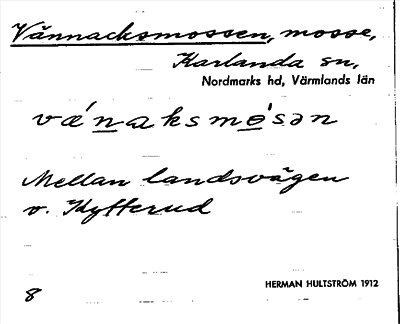 Vännacksmossen, mosse,
Karlanda sn,
Nordmarks hd, Värmlands län
væ´naksmo´sən
Mellan landsvägen
o. Kytterud
HERMAN HULTSTRÖM 1912
8